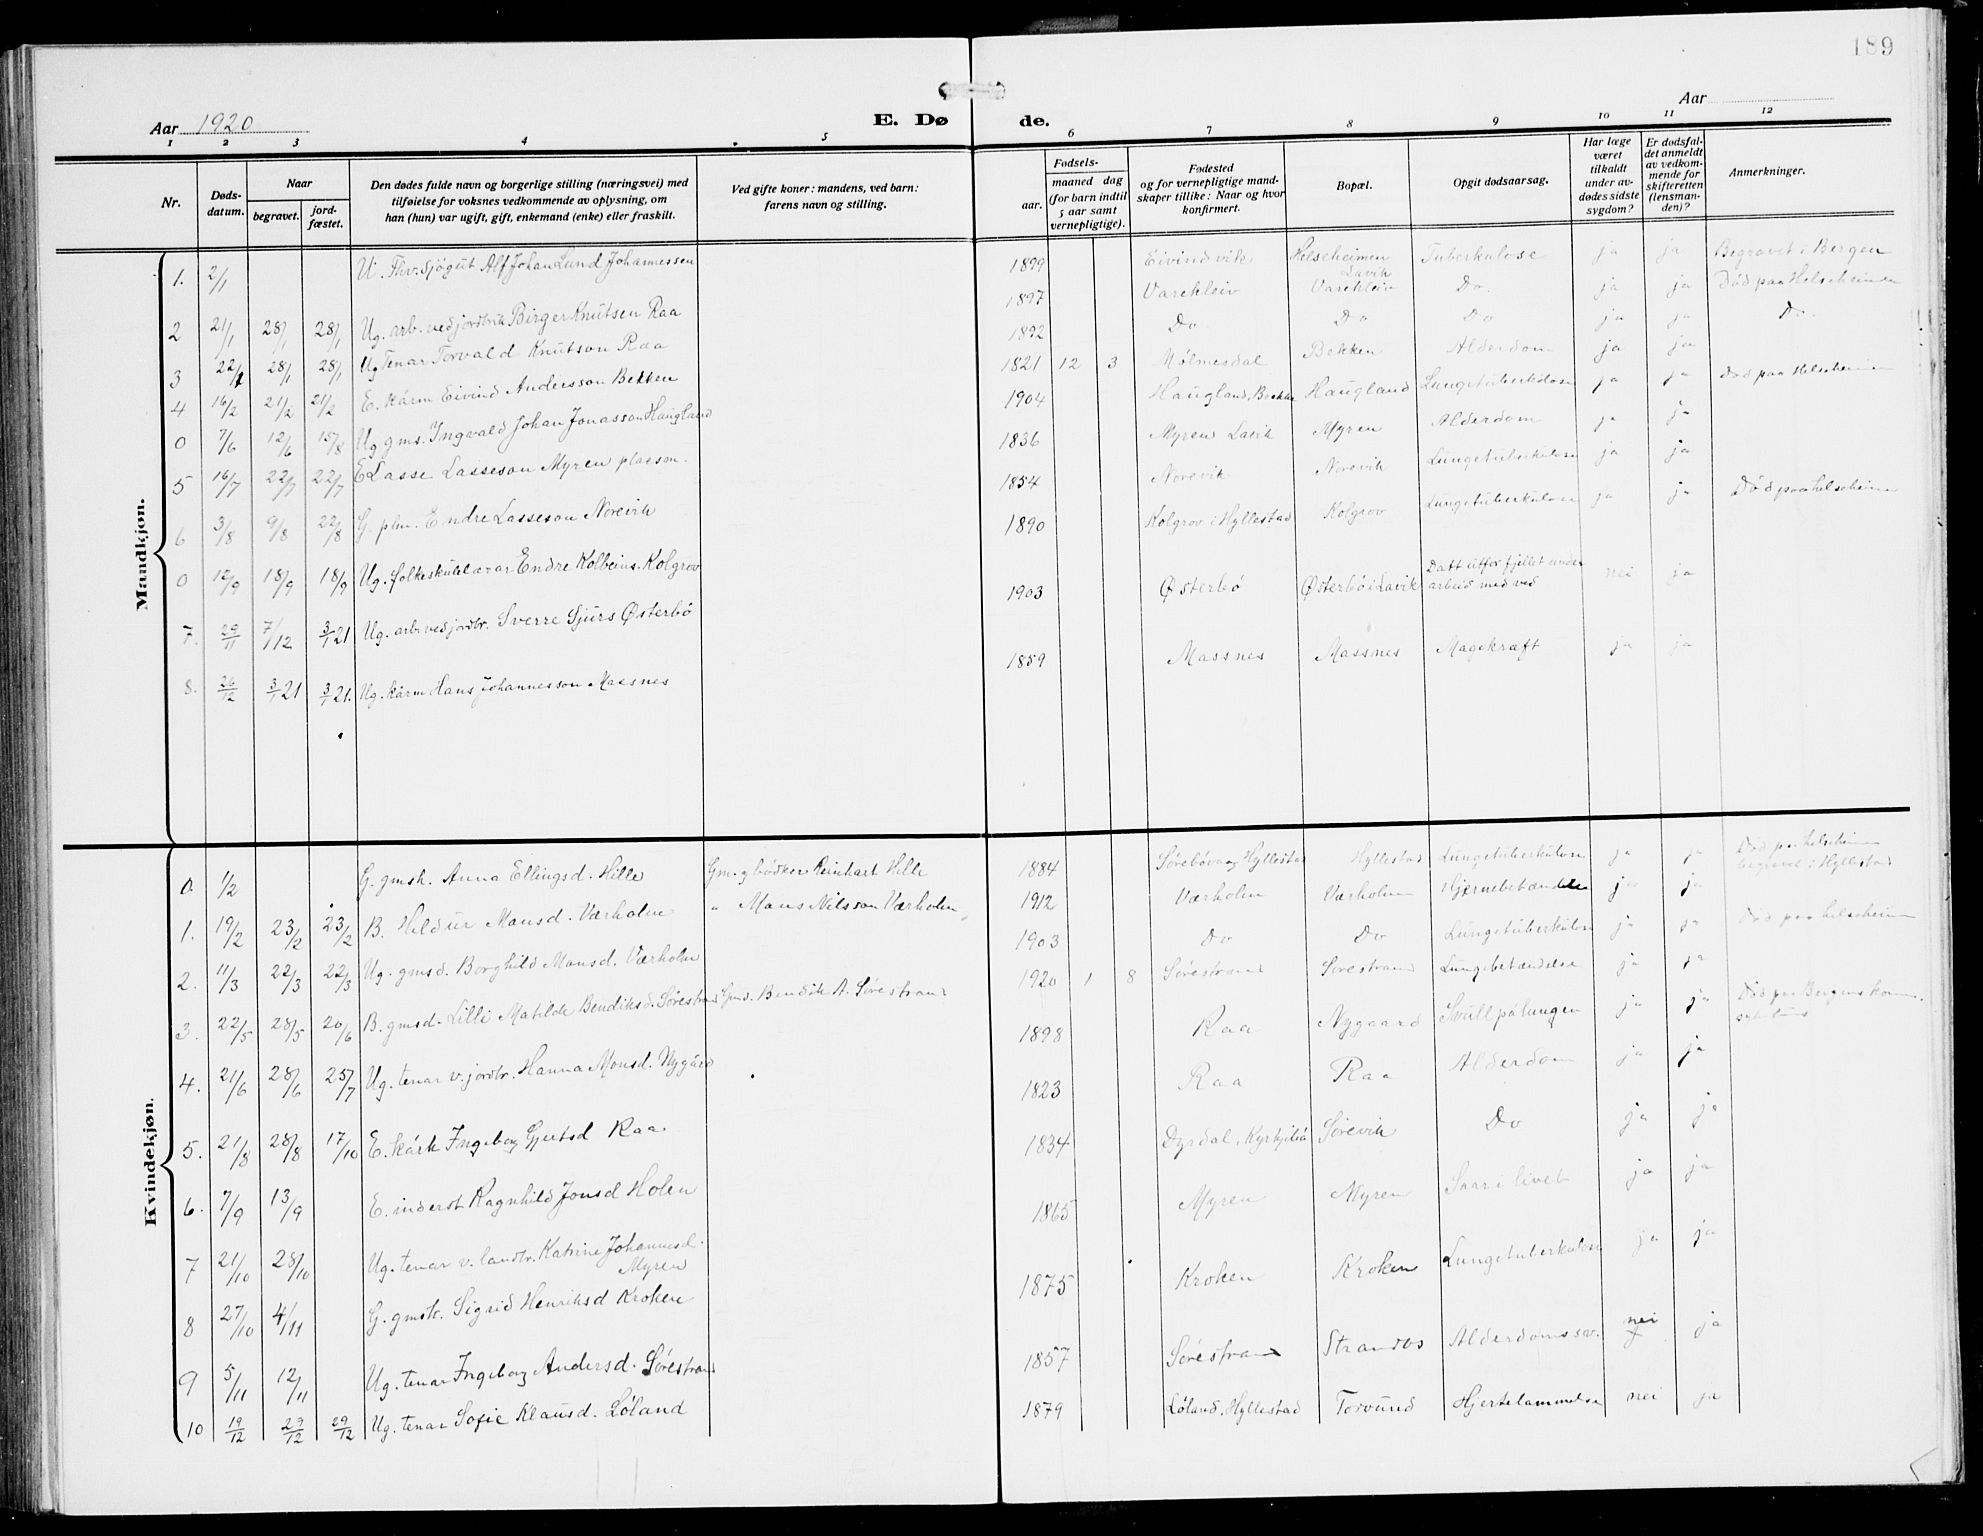 189
Aar 1920
E. Dø
de.
Aar
1 2 3 4 5 6 7 8 9 10 11 12
Nr.
Døds-
datum.
Naar
begravet.
jord-
fæstet.
Den dødes fulde navn og borgerlige stilling (næringsvei) med
tilføielse for voksnes vedkommende av oplysning, om
han (hun) var ugift, gift, enkemand (enke) eller fraskilt.
Ved gifte koner: mandens, ved barn:
farens navn og stilling.
Fødsels-
aar.
maaned dag
(for barn indtil
5 aar samt
vernepligtige).
Fødested
og for vernepligtige mand-
skaper tillike: Naar og hvor
konfirmert.
Bopæl.
Opgit dødsaarsag.
Har læge
været
tilkaldt
under av-
dødes sidste
sygdom?
Er dødsfal-
det anmeldt
av vedkom-
mende for
skifteretten
(lensman-
den)?
Anmerkninger.
Mandkjøn.
1. 2/1 Alf Johan Lund Johannessen 1899 Eivindvik Helseheimen Lavik Tuberkulose ja ja Begravet i Bergen
2 21/1 28/1 28/1 Ug. arb. ved jordbruk Birger Knutsen Raa 1897 Varekleiv Varekleiv Do. ja ja Død paa Helseheimen
3 22/1 28/1 28/1 Ug Tenar Torvald Knutson Raa 1892 Do Do Do ja ja Do.
4 16/2 21/2 21/2 E. kårm Eivind Andersson Bekken 1821 12 3 Mølmesdal Bekken Alderdom ja ja
0 7/6 12/6 15/8 Ug gms. Ingvald Johan Jonasson Haugland 1904 Haugland, Brekke Haugland Lungetuberkulose ja ja Død paa Helseheimen
5 16/7 22/7 22/7 E Lasse Lasseson Myren plasson. 1836 Myren Lavik Myren Alderdom ja ja
6 3/8 9/8 22/8 G. plm. Endre Lasseson Norevik 1854 Norevik Norevik Lungetuberkulose ja ja
0 12/9 18/9 18/9 Ug. folkeskulelærar Endre Kolbeins. Kolgrov 1890 Kolgrov i Hyllestad Kolgrov Lungetuberkulose ja ja Død paa helseheimen
7. 29/11 7/12 3/1 21 Ug. arb. ved jordbr. Sverre Sjurs Østerbø 1903 Østerbø Østerbø i Lavik Datt utfor fjellet under
arbeid med ved nei ja
8. 26/12 3/1 21 3/1 21. Ug. kårm Hans Johannesson Massnes 1859 Massnes Massnes Magekræft ja ja
Kvindekjøn.
0. 1/2 G. gmsk. Anna Ellingsd. Hille Gm. og bødker Reinhart Hille 1884 Sørebøvaag Hyllestad Hyllestad Lungetuberkulose ja ja Død paa helseheim
begravet i Hyllestad
1. 19/2 23/2 23/2 B. Hildur Monsd. Værholm " Mons Nilsson Værholm 1912 Værholm Værholm Hjernebetændelse ja ja
2. 11/3 22/3 22/3 Ug. gmsd. Borghild Monsd. Værholm 1903 Do Do Lungetuberkulose ja ja Død paa helseheim
3. 22/5 28/5 20/6 B. gmsd. Lilli Matilde Bendiksd. Sørestrand Gm. Bendik A. Sørestrand 1920 1 8 Sørestrand Sørestrand Lungebetændelse ja ja
4. 21/6 28/6 25/7 Ug. tenar v. jordbr. Hanna Monsd. Nygård 1898 Raa Nygaard Svull på lungen ja ja Død paa Bergens kom.
5. 21/8 28/8 17/10 E. kårk Ingeborg Gjertsd Raa 1823 Raa Raa Alderdom ja ja
6. 7/9 13/9 E. inderst Ragnhild Jonsd Holen 1834 Dyrdal, Kyrkjebø Sørevik Do ja ja
7 21/10 28/10 Ug. tenar v. landbr. Katrine Johannesd.
Myren 1865 Myren Myren Saar i livet ja ja
8 27/10 4/11 G. gmsk. Sigrid Henriksd Kroken 1875 Kroken Kroken Lungetuberkulose ja ja
9 5/11 12/11 Ug. tenar Ingeborg Andersd. Sørestrand 1857 Sørestrand Strandos Alderdomssv. nei ja
10 19/12 29/12 29/12 Ug. tenar Sofie Klausd. Løland 1879 Løland, Hyllestad Torvund Hjertelammelse nei ja